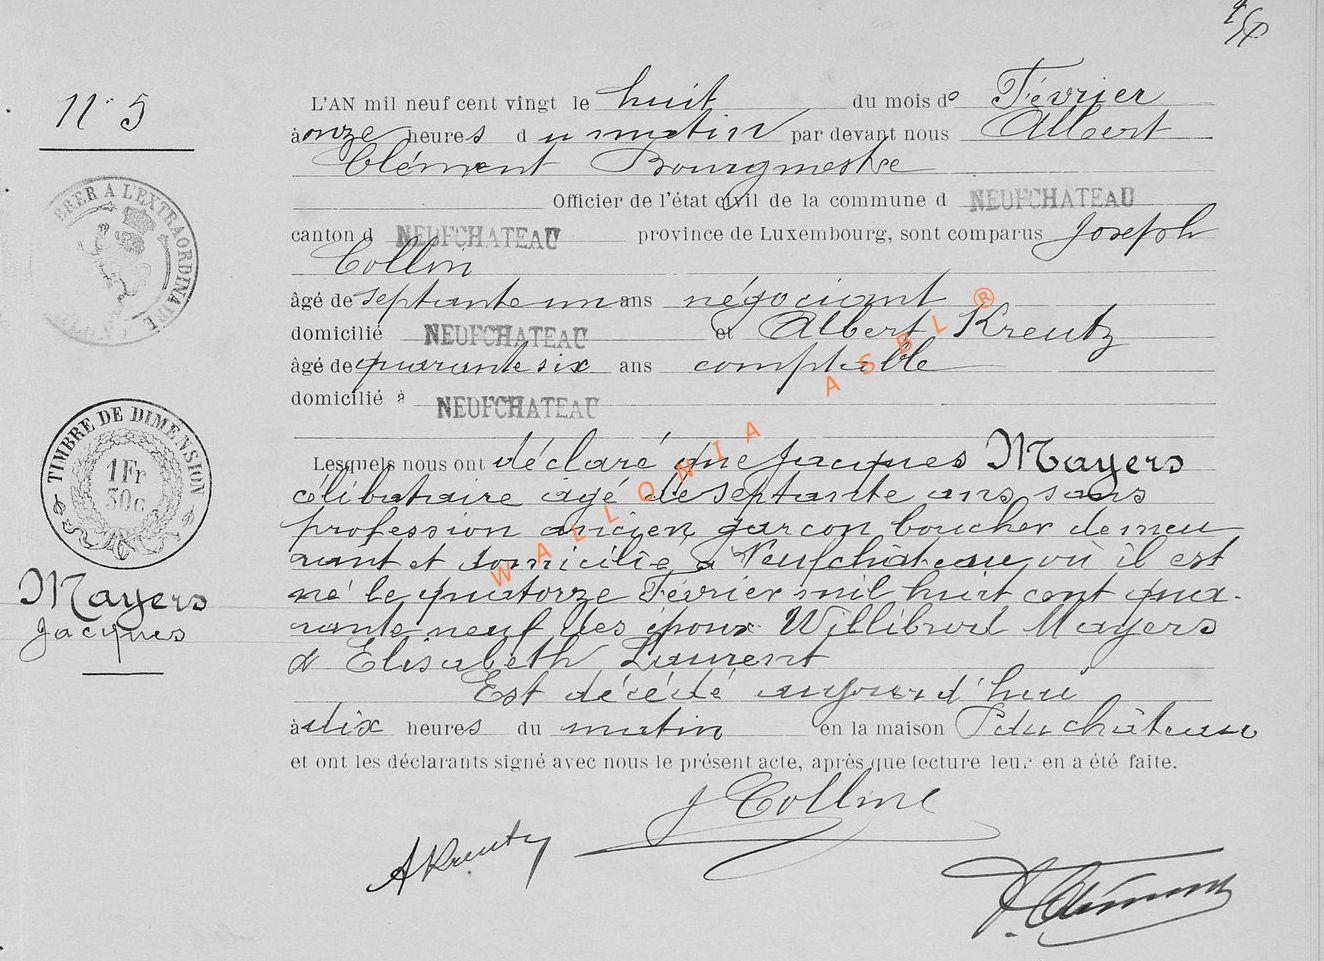 N° 5
L'AN mil neuf cent vingt le huit du mois de Février
à onze heures du matin par devant nous Albert
Clément Bourgmestre
Officier de l'état civil de la commune d NEUFCHATEAU
canton d NEUFCHATEAU province de Luxembourg, sont comparus Joseph
Collin
âgé de septante un ans négociant
domicilié NEUFCHATEAU et Albert Kreutz
âgé de quarante six ans comptable
domicilié à NEUFCHATEAU
Lesquels nous ont déclaré que Jacques Mayers
célibataire âgé de septante ans sans
profession ancien garçon boucher demeu
rant et domicilié à Neufchâteau où il est
né le quatorze Février mil huit cent qua-
rante neuf des époux Willibrord Mayers
& Elisabeth Laurent
Est décédé aujourd'hui
à dix heures du matin en la maison du château
et ont les déclarants signé avec nous le présent acte, après que lecture leur en a été faite.
J Collin
A Kreutz
A. Clément
ERER A L'EXTRAORDINAIRE
TIMBRE DE DIMENSION
1 Fr
30c
Mayers
Jacques
WALLONIA ASBL ®